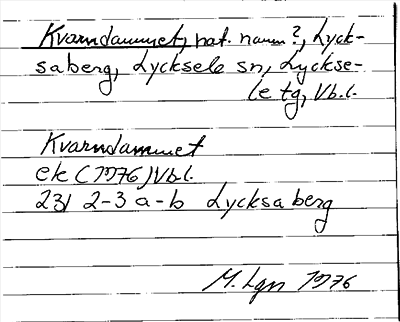 Kvarndammet, nat. namn?, Lyck-
saberg, Lycksele sn, Lyckse-
le tg, Vbl.
Kvarndammet
ek (1976) Vbl.
23I 2-3 a-b Lycksaberg
M. Lgn 1976